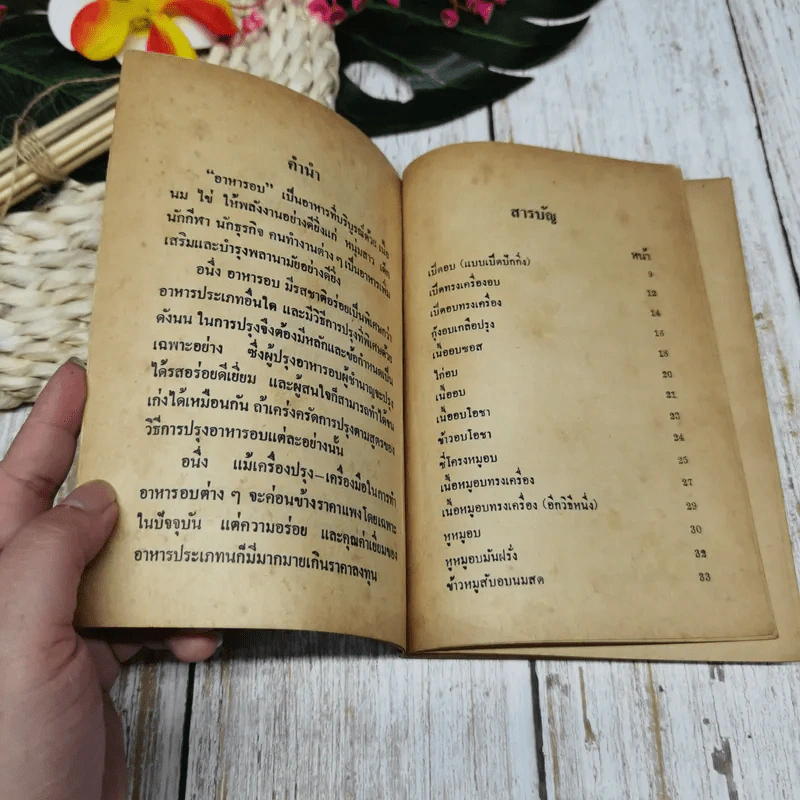 คำนำ
“อาหารอบ” เป็นอาหารที่บริบูรณ์ด้วย เนื้อ
นม ไข่ ให้พลังงานอย่างดียิ่งแก่ หนุ่มสาว เด็ก
นักกีฬา นักธุรกิจ คนทำงานต่าง ๆ เป็นอาหารเพิ่ม
เสริมและบำรุงพลานามัยอย่างดียิ่ง
อนึ่ง อาหารอบ มีรสชาติอร่อยเป็นพิเศษกว่า
อาหารประเภทอื่นใด และมีวิธีการปรุงที่พิเศษด้วย
ดังนน ในการปรุงจึงต้องมีหลักและข้อกำหนดเป็น
เฉพาะอย่าง ซึ่งผู้ปรุงอาหารอบผู้ชำนาญจะปรุง
ได้รสอร่อยดีเยี่ยม และผู้สนใจก็สามารถทำได้จน
เก่งได้เหมือนกัน ถ้าเคร่งครัดการปรุงตามสูตรของ
วิธีการปรุงอาหารอบแต่ละอย่างนั้น
อนึ่ง แม้เครื่องปรุง–เครื่องมือในการทำ
อาหารอบต่าง ๆ จะค่อนข้างราคาแพงโดยเฉพาะ
ในปัจจุบัน แต่ความอร่อย และคุณค่าเยี่ยมของ
อาหารประเภทนก็มีมากมายเกินราคาลงทุน
สารบัญ
หน้า
เป็ดอบ (แบบเป็ดปักกิ่ง) 9
เป็ดทรงเครื่องอบ 12
เป็ดอบทรงเครื่อง 14
กุ้งอบเกลือปรุง 16
เนื้ออบซอส 18
ไก่อบ 20
เนื้ออบ 21
เนื้ออบโอชา 23
ข้าวอบโอชา 24
ซี่โครงหมูอบ 25
เนื้อหมูอบทรงเครื่อง 27
เนื้อหมูอบทรงเครื่อง (อีกวิธีหนึ่ง) 29
หูหมูอบ 30
หูหมูอบมันฝรั่ง 32
ข้าวหมูสับอบนมสด 33